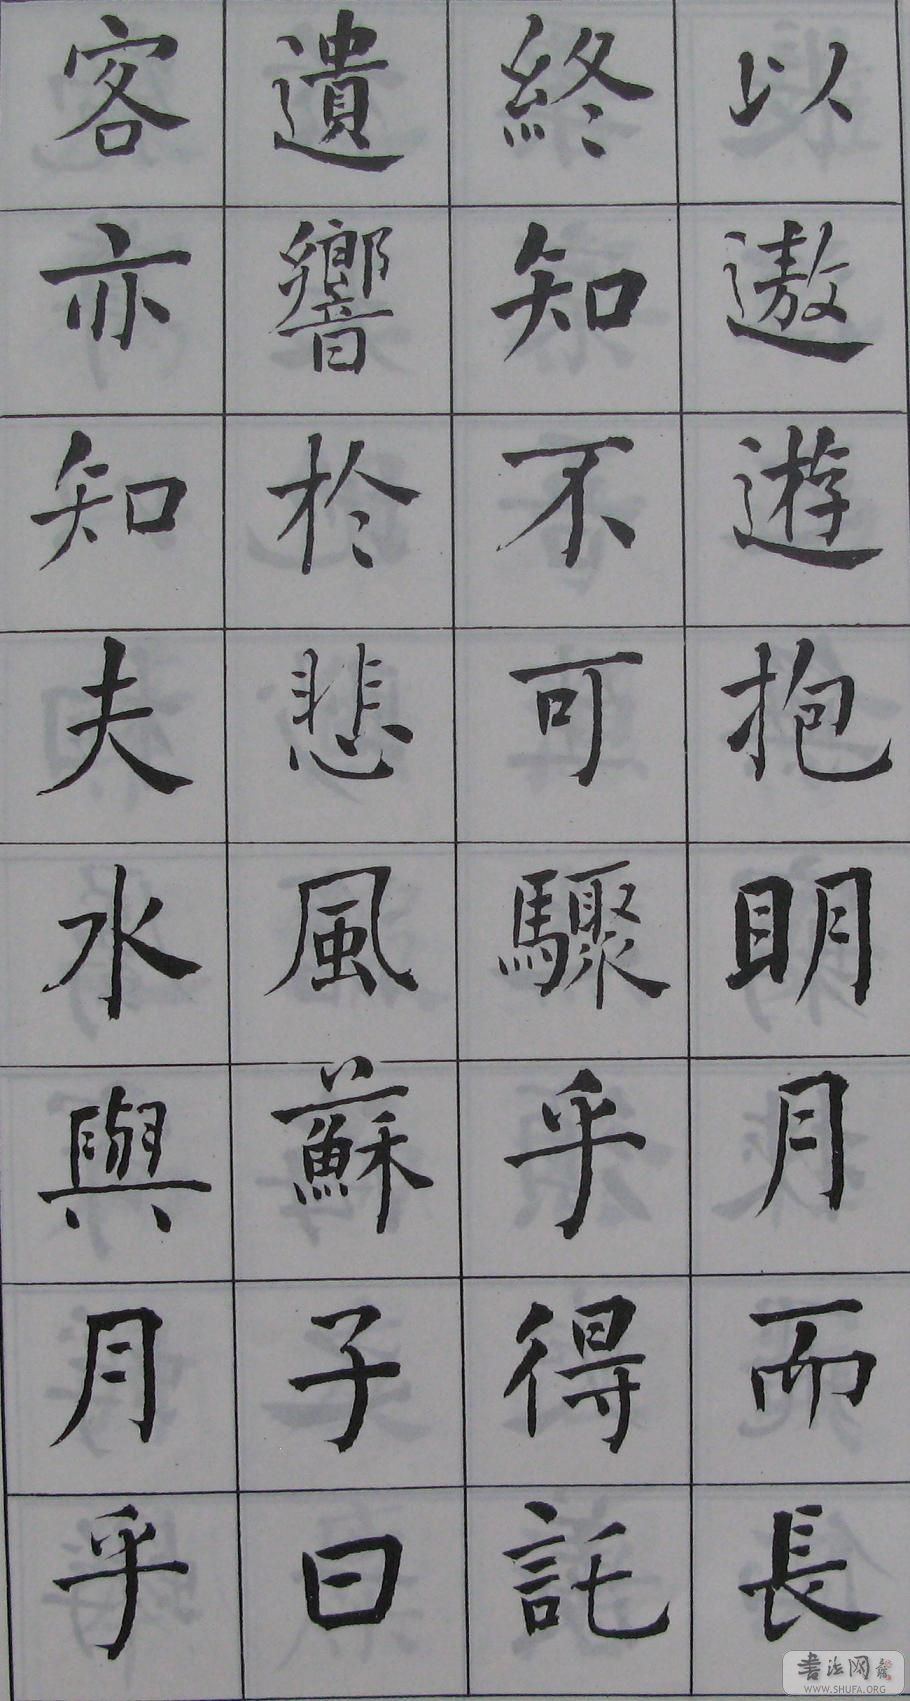 以遨遊抱明月而長
終知不可驟乎得託
遺響於悲風蘇子曰
客亦知夫水與月乎
书法网
WWW.SHUFA.ORG